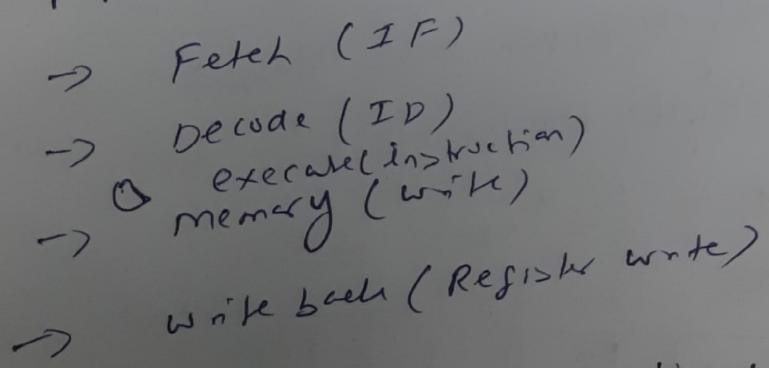 → Fetch (IF)
→ Decode (ID)
execute (instruction)
→ memory (write)
→ write back (Register write)